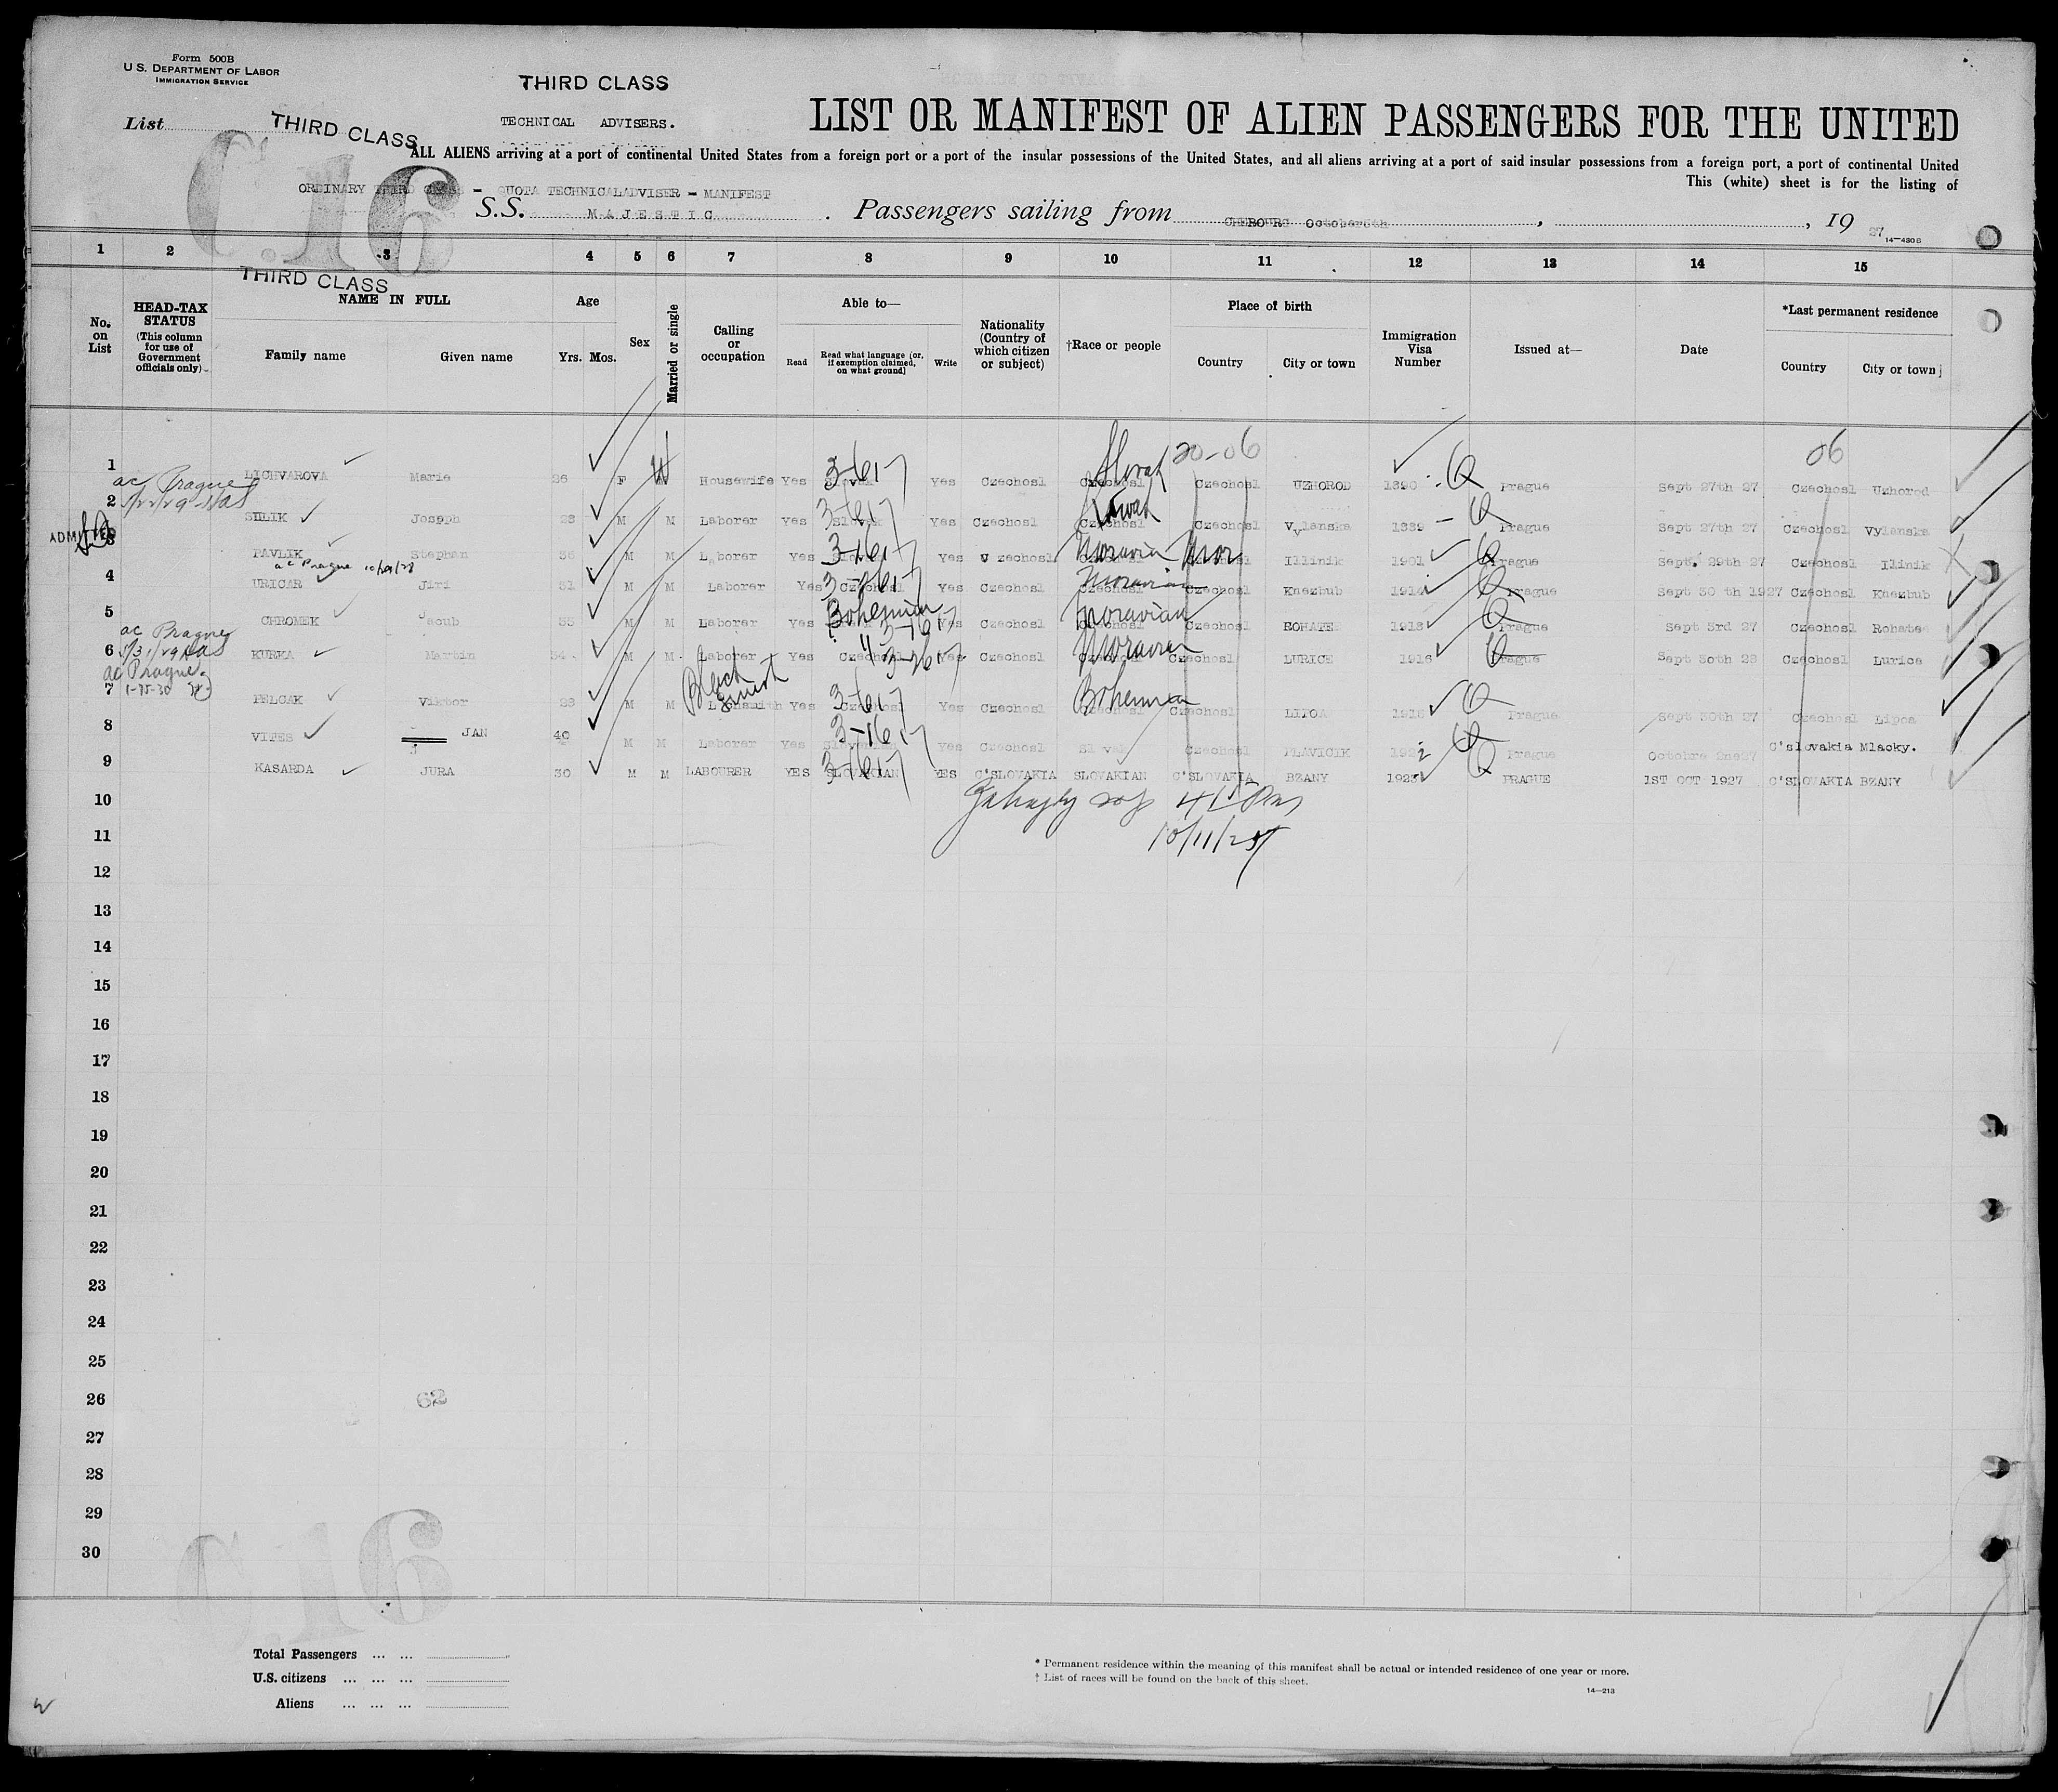 Form 500B
U.S. DEPARTMENT OF LABOR
IMMIGRATION SERVICE
THIRD CLASS
TECHNICAL ADVISERS.
LIST OR MANIFEST OF ALIEN PASSENGERS FOR THE UNITED
List
THIRD CLASS
ALL ALIENS arriving at a port of continental United States from a foreign port or a port of the insular possessions of the United States, and all aliens arriving at a port of said insular possessions from a foreign port, a port of continental United
This (white) sheet is for the listing of
C.16
ORDINARY THIRD CLASS - QUOTA TECHNICALADVISER - MANIFEST
S.S. MAJESTIC. Passengers sailing from CHERBOURG October 5th, , 19 27
14-4308
1 2 3 4 5 6 7 8 9 10 11 12 13 14 15
THIRD CLASS
No. on List
HEAD-TAX STATUS
(This column for use of Government officials only)
NAME IN FULL
Family name Given name
Age
Yrs. Mos.
Sex
Married or single
Calling or occupation
Able to—
Read
Read what language (or, if exemption claimed, on what ground)
Write
Nationality (Country of which citizen or subject)
†Race or people
Place of birth
Country City or town
Immigration Visa Number
Issued at—
Date
*Last permanent residence
Country City or town
20-06 06
1 LICHVAROVA Marie 26 F W Housewife Yes Yes Czechosl Slovak Czechosl UZHOROD 1890 Q Prague Sept 27th 27 Czechosl Uzhorod
ac Prague
2 Joseph 28 M M Laborer Yes Slovak Yes Czechosl Slovak Czechosl Vylanska 1889 Q Prague Sept 27th 27 Czechosl Vylanska
ADMITTED
3 PAVLIK Stephan 36 M M Laborer Yes Yes Czechosl Moravian Mor Illinik 1901 Q Prague Sept. 29th 27 Czechosl Ilinik
ac Prague
4 URICAR Jiri 31 M M Laborer Yes Czechosl Yes Czechosl Moravian Czechosl Knezbub 1914 Q Prague Sept 30 th 1927 Czechosl Knezbub
5 CHROMEK Jacub 35 M M Laborer Yes Bohemian Yes Czechosl Moravian Czechosl ROHATE 1913 Q Prague Sept 3rd 27 Czechosl Rohatec
ac Prague
6 KURKA Martin 34 M M Laborer Yes Czechosl Yes Czechosl Moravian Czechosl LURICE 1916 Q Prague Sept 30th 28 Czechosl Lurice
ac Prague
7 PELCAK Viktor 28 M M Black Smith Yes Czechosl Yes Czechosl Bohemian Czechosl LIPOA Q Prague Sept 30th 27 Czechosl Lipoa
8 VITES JAN 40 M M Laborer Yes Yes Czechosl Slovak Czechosl PLAVICIK Q Prague Octobre 2ne27 C'slovakia Mlacky.
9 KASARDA JURA 30 M M LABOURER YES SLOVAKIAN YES C'SLOVAKIA SLOVAKIAN C'SLOVAKIA BZANY 1923 Q PRAGUE 1ST OCT 1927 C'SLOVAKIA BZANY
10
11 10/11/27
12
13
14
15
16
17
18
19
20
21
22
23
24
25
26 62
27
28
29
30
C.16
Total Passengers ... ...
U.S. citizens ... ... ...
Aliens ... ... ...
* Permanent residence within the meaning of this manifest shall be actual or intended residence of one year or more.
† List of races will be found on the back of this sheet.
14-213